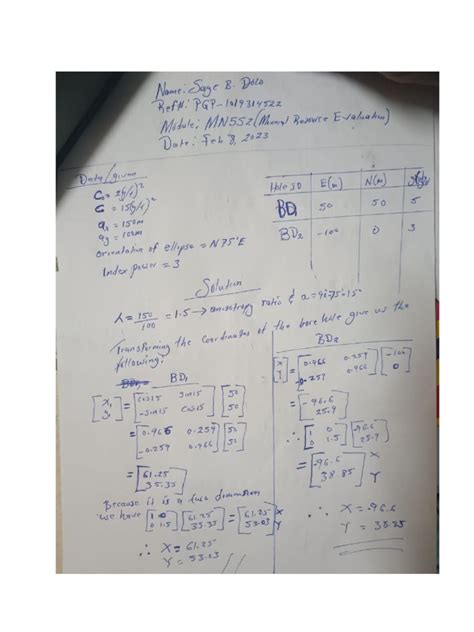 Name: Saye B. Dolo
Ref No: PGP-1019314522
Module: MN552 (Mineral Resource Evaluation)
Date: Feb 8, 2023
Data/given
C = 15(g/t)²
ax = 150m
ay = 100m
Orientation of ellipse = N75°E
Index power = 3
Hole ID E(m) N(m)
BD1 50 50 5
BD2 -100 0 3
Solution
λ = 150/100 = 1.5 → anisotropy ratio & α = 90-75=15°
Transforming the coordinates of the bore hole give us the
following:
BD1
[x1 y1] = [cos15 sin15 -sin15 cos15] [50 50]
= [0.966 0.259 -0.259 0.966] [50 50]
= [61.25 35.35]
Because it is a two dimension
we have [1 0 0 1.5] [61.25 35.35] = [61.25 53.03] X Y
∴ X = 61.25
Y = 53.03
BD2
[x y] = [0.966 0.259 -0.259 0.966] [-100 0]
= [-96.6 25.9]
∴ [1 0 0 1.5] [-96.6 25.9]
= [-96.6 38.85] X Y
∴ X = -96.6